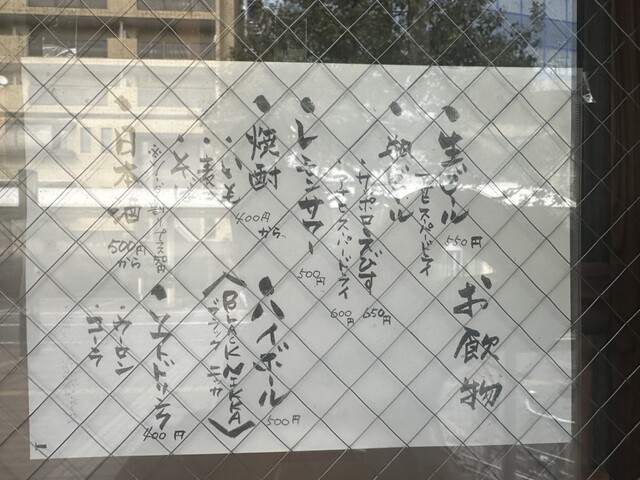 お飲物
・生ビール
アサヒスーパードライ
550円
・瓶ビール
サッポロ・ヱビス
650円
アサヒスーパードライ
600円
・レモンサワー
500円
・焼酎
・いも
・麦
・そば
400円から
・ハイボール
500円
〈BLACK NIKKA〉
ブラックニッカ
・日本酒
500円から
・ソフトドリンク
400円
・ウーロン
・コーラ